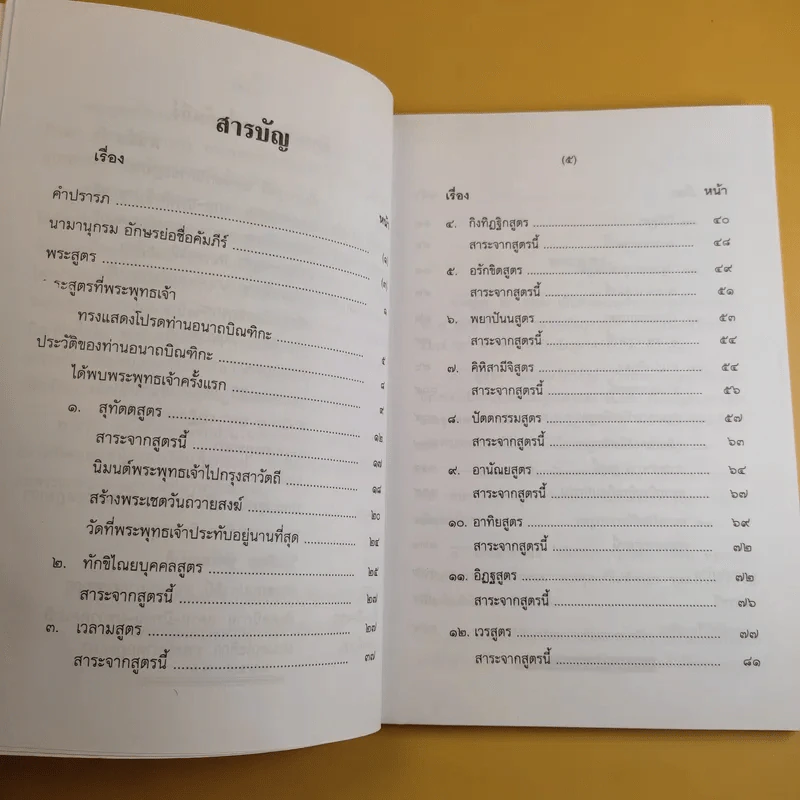 สารบัญ
เรื่อง
หน้า
คำปรารภ
นามานุกรม อักษรย่อชื่อคัมภีร์ (๑)
พระสูตร (๓)
ระสูตรที่พระพุทธเจ้า ๑
ทรงแสดงโปรดท่านอนาถบิณฑิกะ
ประวัติของท่านอนาถบิณฑิกะ ๕
ได้พบพระพุทธเจ้าครั้งแรก ๘
๑. สุทัตตสูตร ๙
สาระจากสูตรนี้ ๑๒
นิมนต์พระพุทธเจ้าไปกรุงสาวัตถี ๑๗
สร้างพระเชตวันถวายสงฆ์ ๑๘
วัดที่พระพุทธเจ้าประทับอยู่นานที่สุด ๒๐
๒๔
๒. ทักขิไณยบุคคลสูตร ๒๕
สาระจากสูตรนี้ ๒๗
๓. เวลามสูตร ๒๗
สาระจากสูตรนี้ ๓๗
(๕)
เรื่อง หน้า
๔. กิงทิฏฐิกสูตร ๔๐
สาระจากสูตรนี้ ๔๘
๕. อรักขิตสูตร ๔๙
สาระจากสูตรนี้ ๕๑
๖. พยาปันนสูตร ๕๓
สาระจากสูตรนี้ ๕๔
๗. คิหิสามีจิสูตร ๕๔
สาระจากสูตรนี้ ๕๖
๘. ปัตตกรรมสูตร ๕๗
สาระจากสูตรนี้ ๖๓
๙. อานัณยสูตร ๖๔
สาระจากสูตรนี้ ๖๗
๑๐. อาทิยสูตร ๖๙
สาระจากสูตรนี้ ๗๒
๑๑. อิฏฐสูตร ๗๒
สาระจากสูตรนี้ ๗๖
๑๒. เวรสูตร ๗๗
สาระจากสูตรนี้ ๘๑